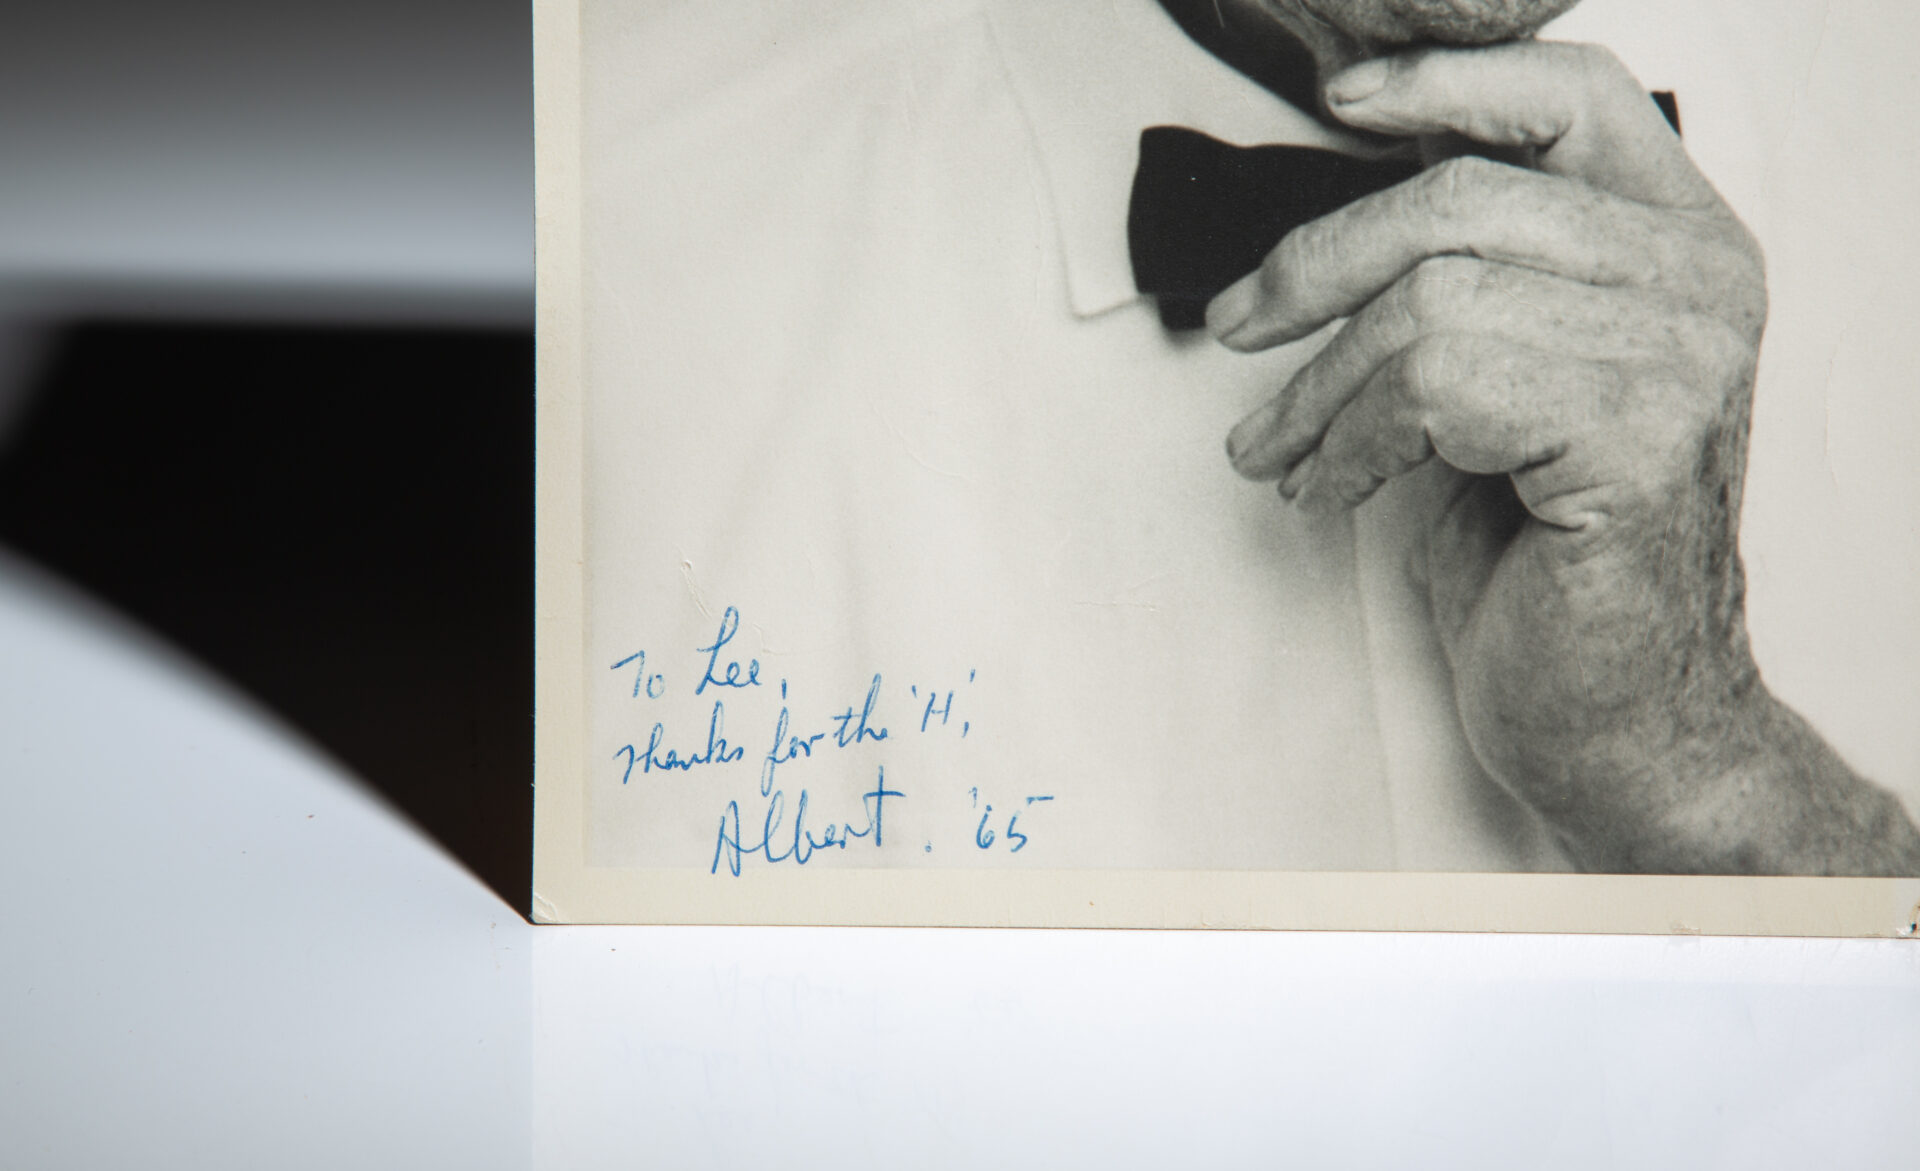 To Lee,
Thanks for the 'H',
Albert. '65